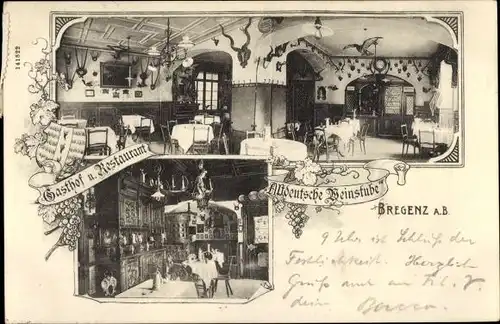 141622
Gasthof u. Restaurant
Altdeutsche Weinstube
BREGENZ A.B.
9 Uhr ist Schluß der
Festlichkeit. Herzlich
Gruß auch an
dein